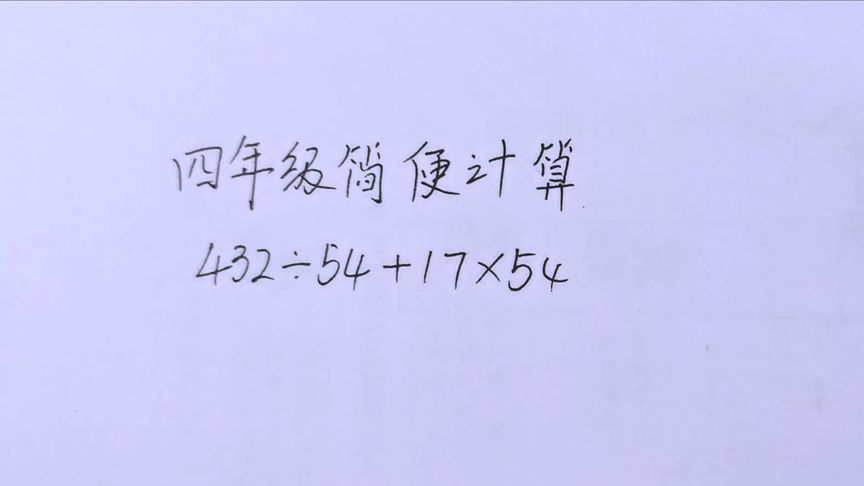 四年级简便计算
432÷54+17×54